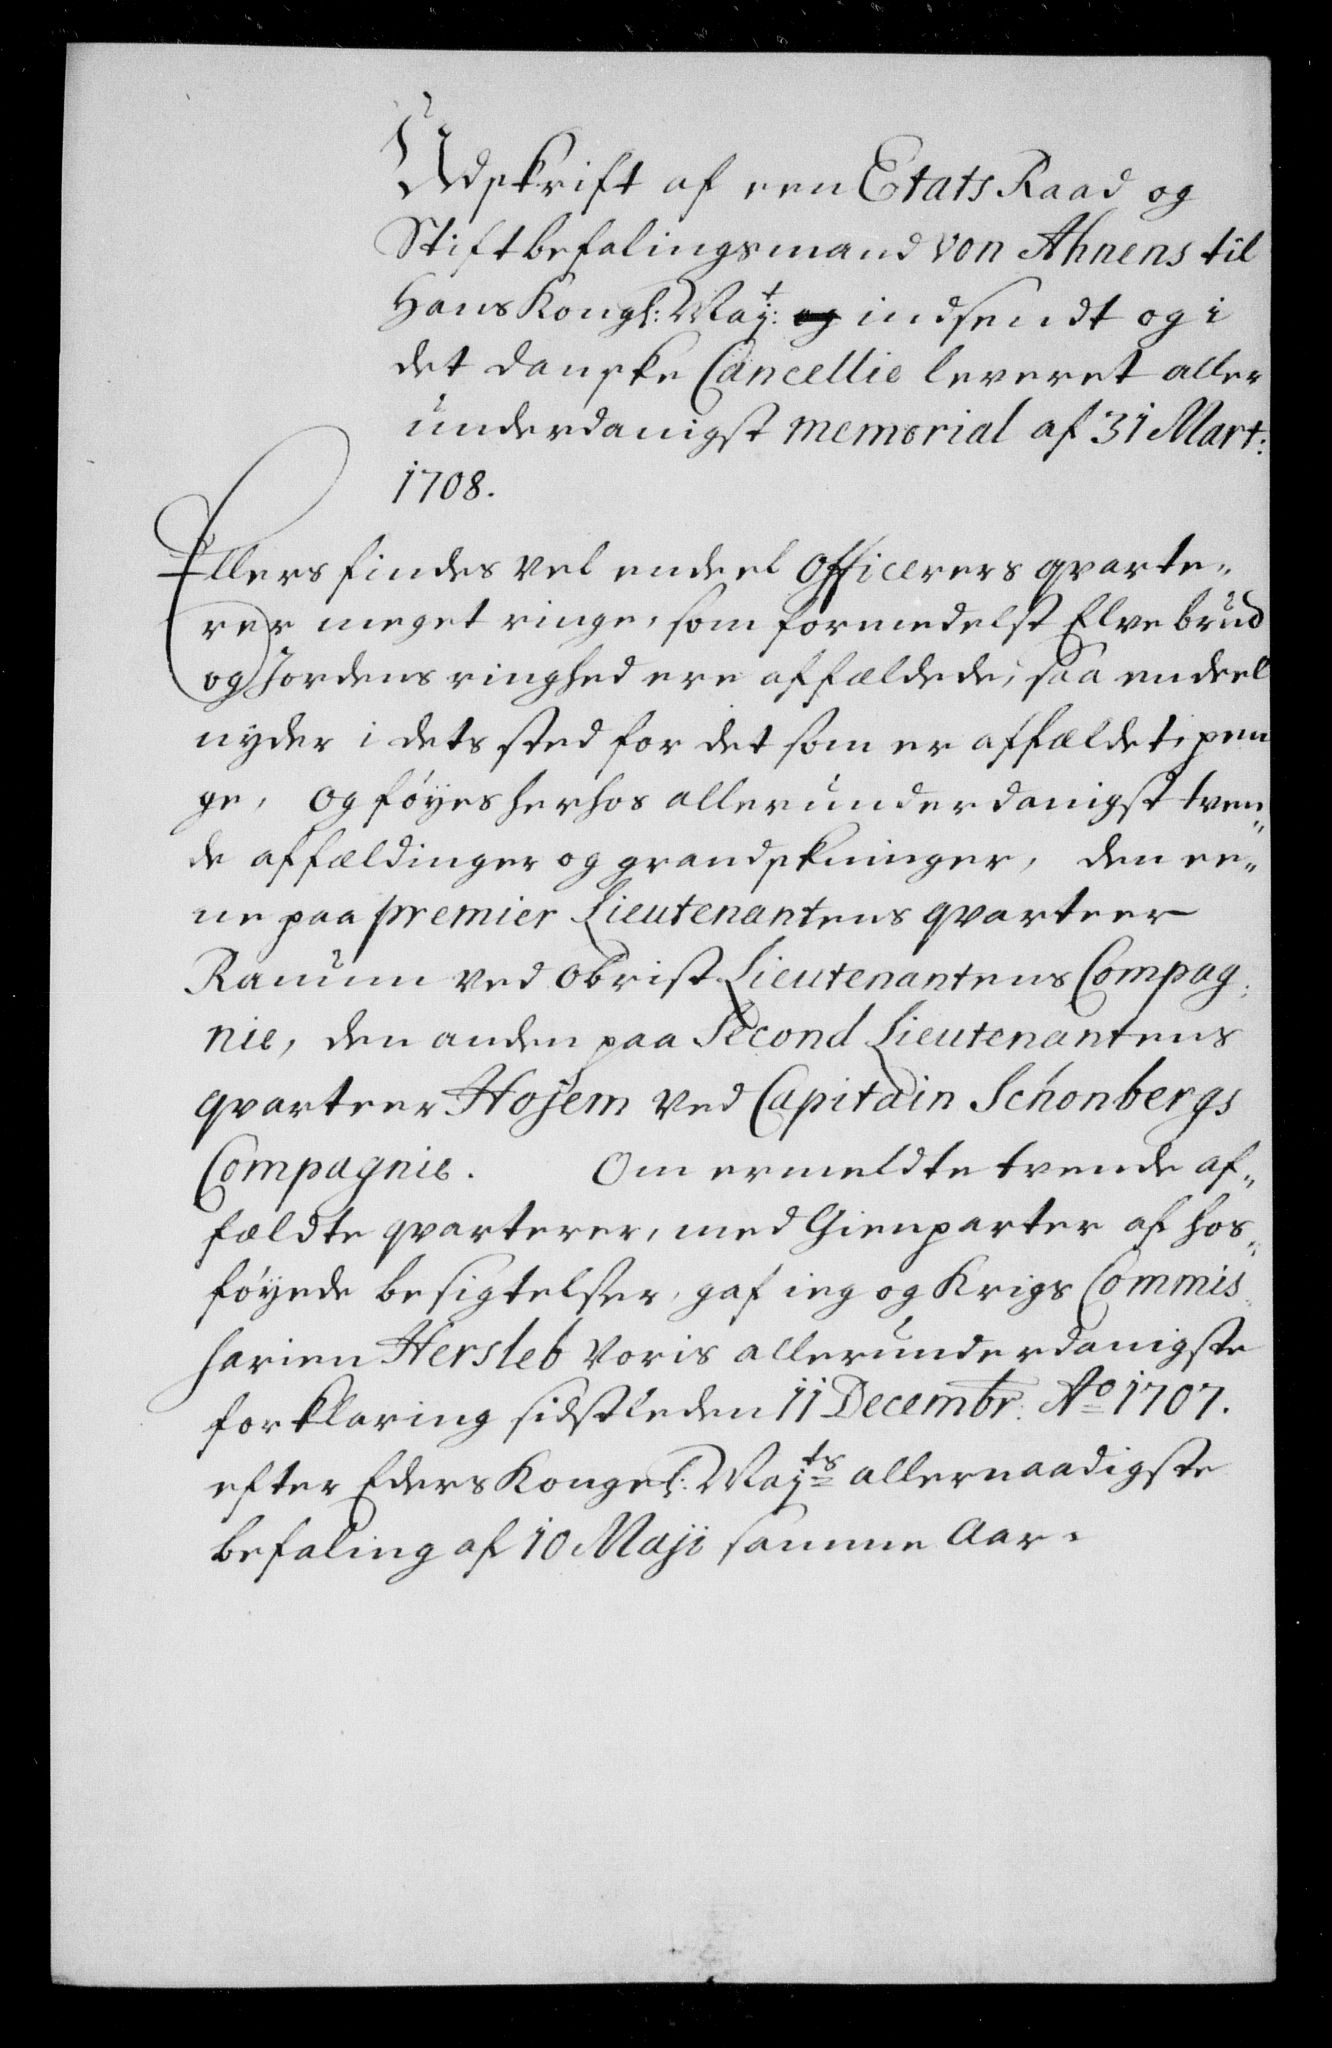 Udskrift af een Etats Raad og
Stiftbefalingsmand von Ahnens til
Hans Kongl: Maj:t og indsendt og i
det danske Cancellie leveret aller
underdanigst memorial af 31 Mart:
1708.
Ellers findes vel endeel Officerers qvarte„
rer meget ringe, som formedelst Elvebrud
og Jordens ringhed ere affældede, saa endeel
nyder i dets sted for det som er affældet, pen
ge, og føyes herhos allerunderdanigst tven„
de affældinger og grandskninger, den ee„
ne paa premier Lieutenantens qvarteer
Ranum ved Obrist Lieutenantens Compag:
nie, den anden paa Second Lieutenantens
qvarteer Hojem ved Capitain Schönbergs
Compagnie. Om ermeldte tvende af„
fældte qvarterer, med Gienparter af hos„
føyede besigtelser, gaf ieg og Krigs Commis
sarien Hersleb voris allerunderdanigste
forklaring sidstleden 11 Decembr: Ao 1707.
efter Eders Kongel: Majts allernaadigste
befaling af 10 Maji samme Aar.